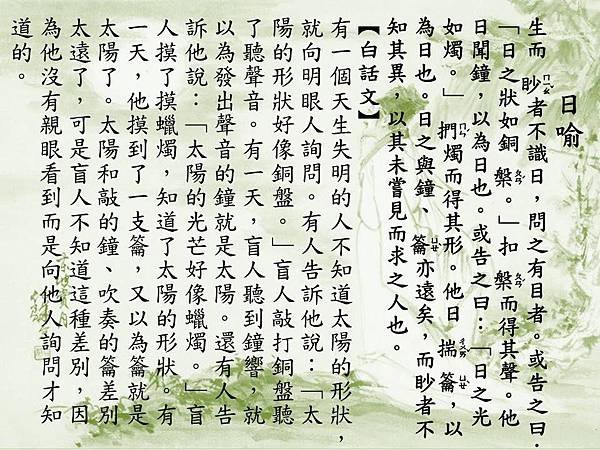 日喻
生而眇者不識日，問之有目者。或告之曰：
「日之狀如銅槃。」扣槃而得其聲。他
日聞鐘，以為日也。或告之曰：「日之光
如燭。」捫燭而得其形。他日揣籥，以
為日也。日之與鐘、籥亦遠矣，而眇者不
知其異，以其未嘗見而求之人也。
【白話文】
有一個天生失明的人不知道太陽的形狀，
就向明眼人詢問。有人告訴他說：「太
陽的形狀好像銅盤。」盲人敲打銅盤聽
了聽聲音。有一天，盲人聽到鐘響，就
以為發出聲音的鐘就是太陽。還有人告
訴他說：「太陽的光芒好像蠟燭。」盲
人摸了摸蠟燭，知道了太陽的形狀。有
一天，他摸到了一支籥，又以為籥就是
太陽了。太陽和敲的鐘、吹奏的籥差別
太遠了，可是盲人不知道這種差別，因
為他沒有親眼看到而是向他人詢問才知
道的。